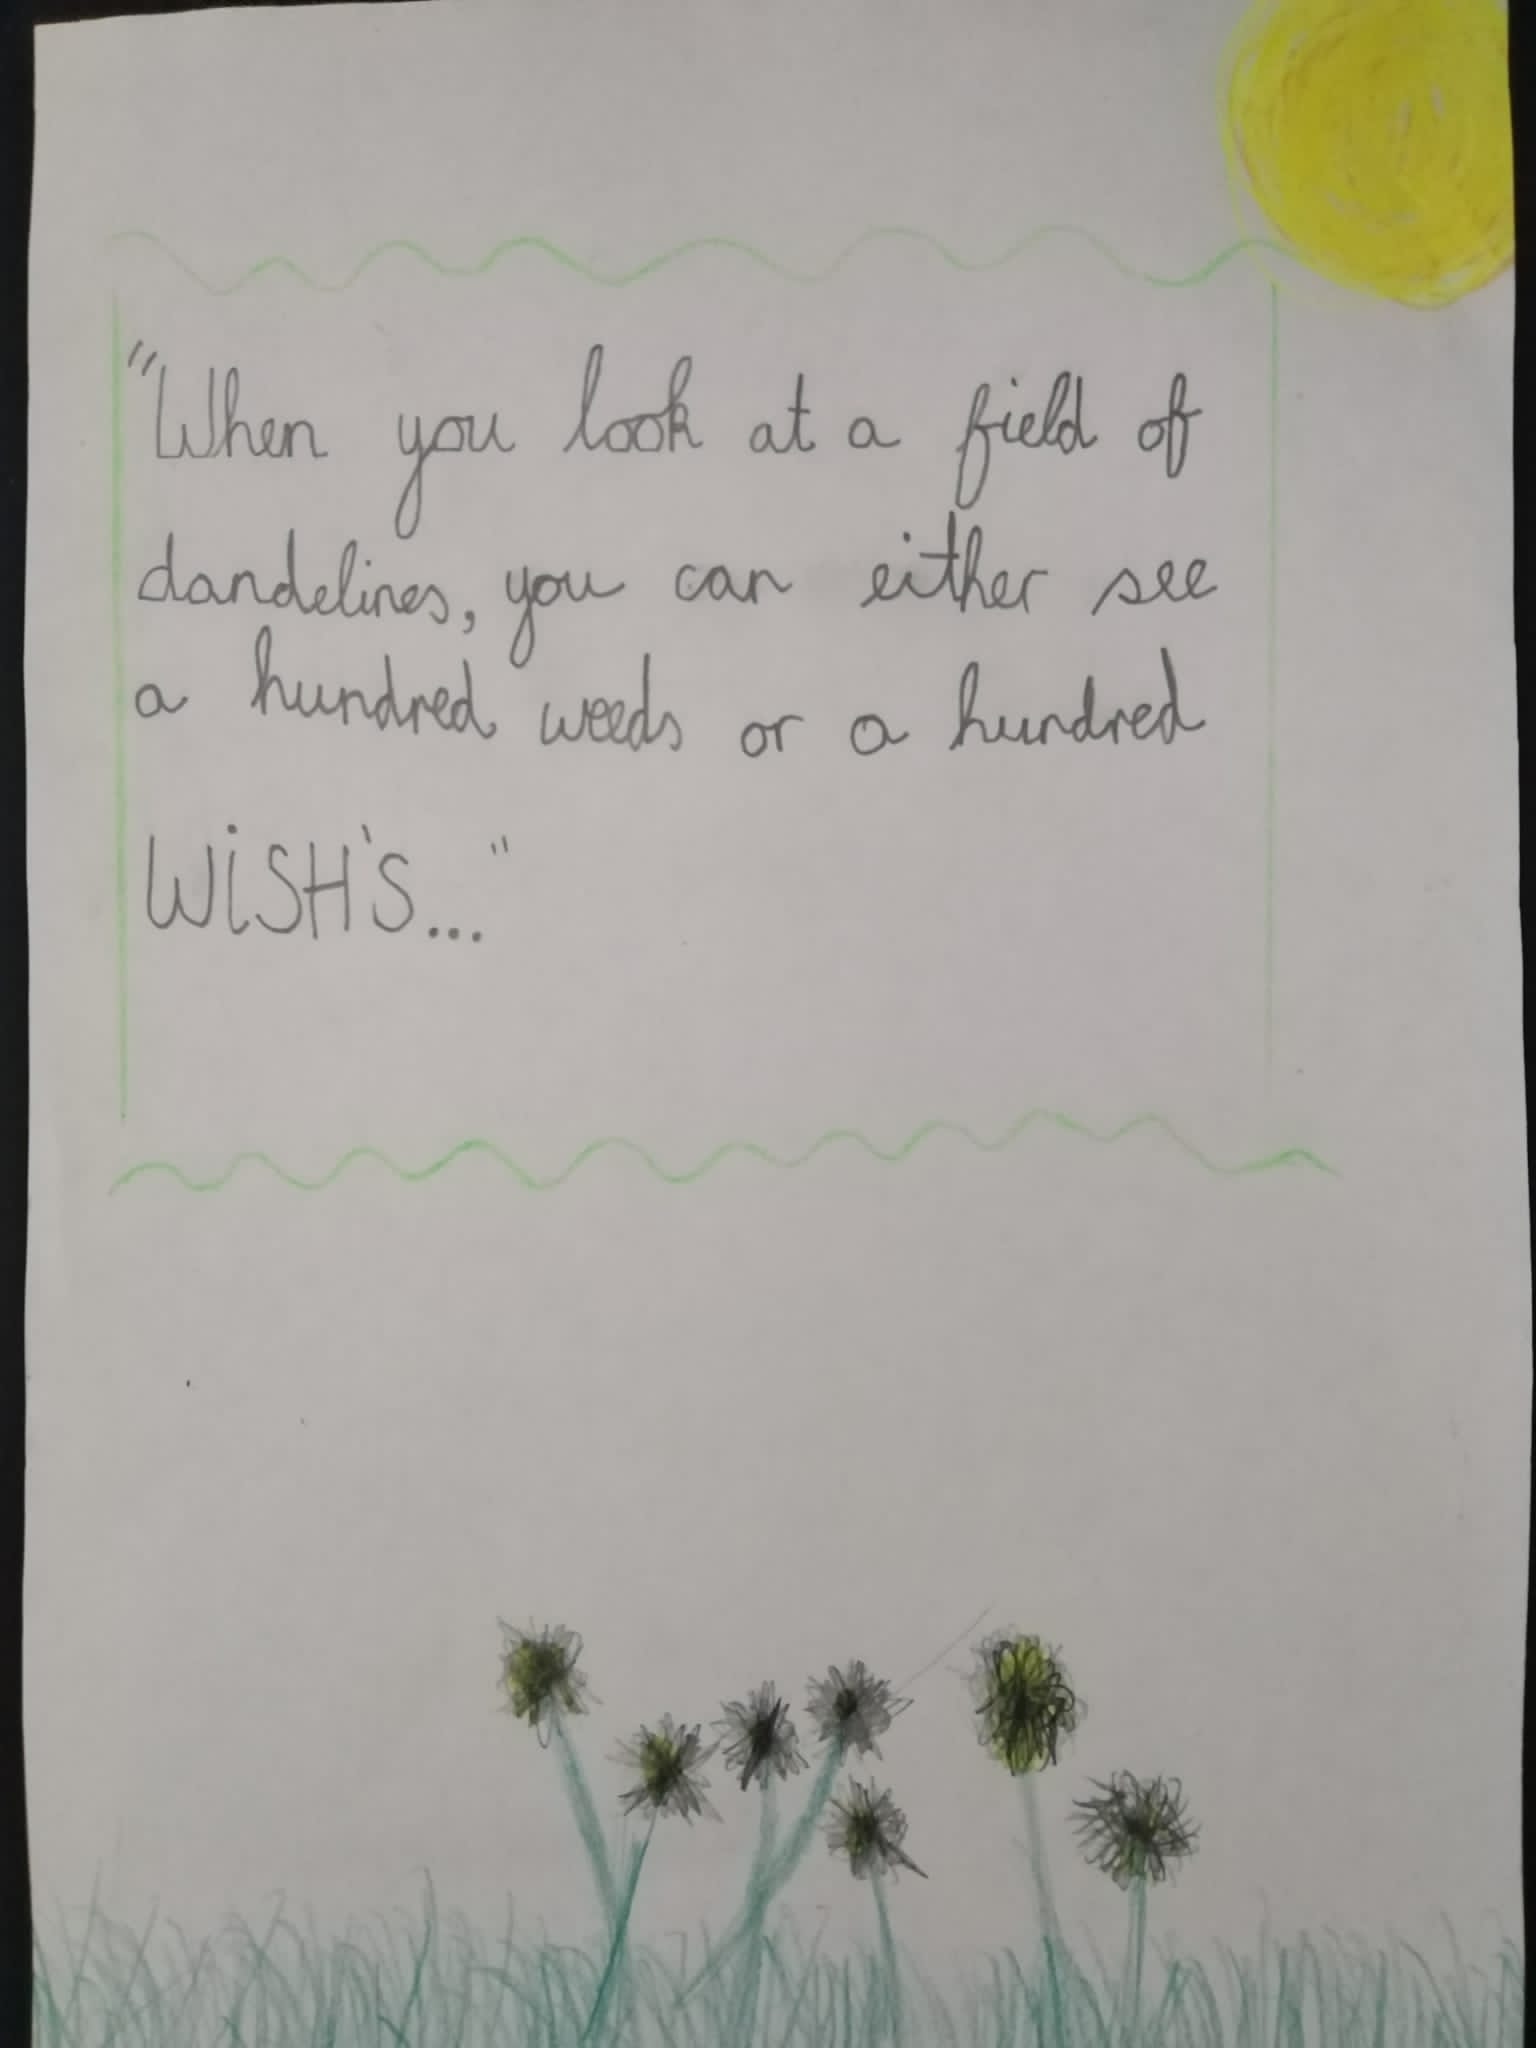 "When you look at a field of
dandelines, you can either see
a hundred weeds or a hundred
WiSH'S..."